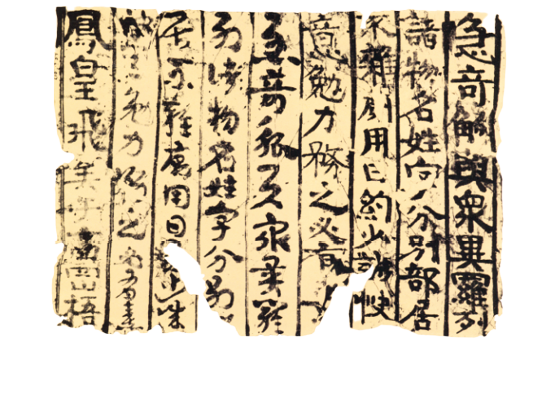 急奇觚與衆異羅列
諸物名姓字分別部居
不雜廁用日約少誠快
意勉力務之必有
急奇觚與衆異羅
列諸物名姓字分別
居不雜廁用日
勉力務之必有憙
鳳皇飛梧